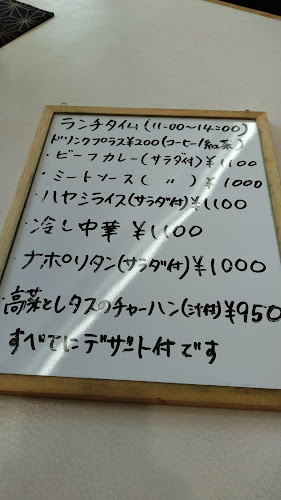 ランチタイム(11:00~14:00)
ドリンクプラス¥200(コーヒー/紅茶)
・ビーフカレー(サラダ付)¥1100
・ミートソース(〃)¥1000
・ハヤシライス(サラダ付)¥1100
・冷し中華¥1100
・ナポリタン(サラダ付)¥1000
高菜とレタスのチャーハン(汁付)¥950
すべてにデザート付です